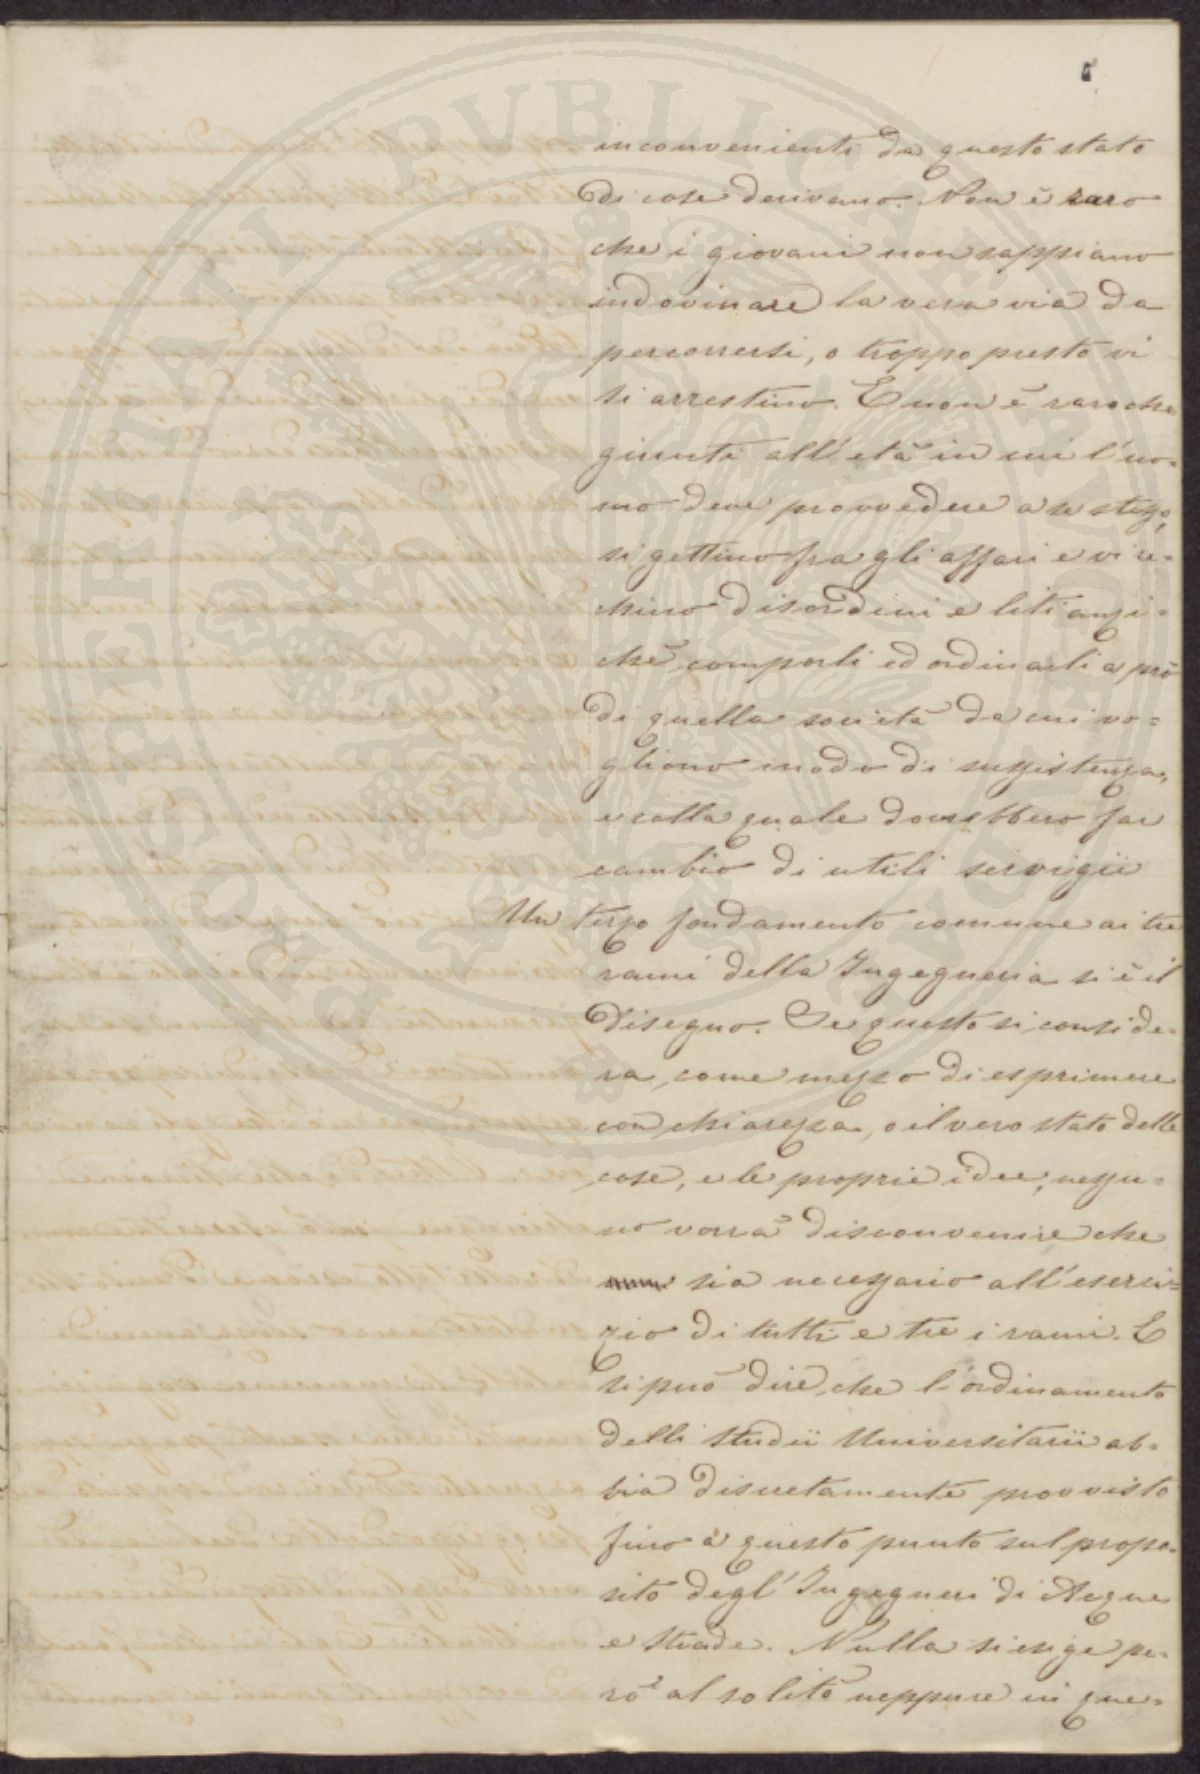 5
inconvenienti da questo stato
di cose derivano. Non è raro
che i giovani non sappiano
indovinare la vera via da
percorrersi, o troppo presto vi
si arrestino. E non è raro che
giunti all'età in cui l'uo=
mo deve provvedere a se stesso,
si gettino fra gli affari e vi re=
chino disordini e liti anzi=
chè comporli ed ordinarli a prò
di quella società da cui vo=
gliono modo di sussistenza,
e colla quale dovrebbero far
cambio di utili servigii
Un terzo fondamento comune ai tre
rami della Ingegneria si è il
Disegno. Se questo si conside=
ra, come mezzo di esprimere
con chiarezza, o il vero stato delle
cose, e le proprie idee, nessu=
no vorrà disconvenire che
sia necessario all'eserci=
zio di tutti e tre i rami. E
si può dire, che l'ordinamento
delli Studii Universitarii ab=
bia discretamente provvisto
fino a questo punto sul propo=
sito degl'Ingegneri di Acque
e Strade. Nulla si esige pe=
rò al solito neppure in que=
PROSPERITATI PVBLICAE